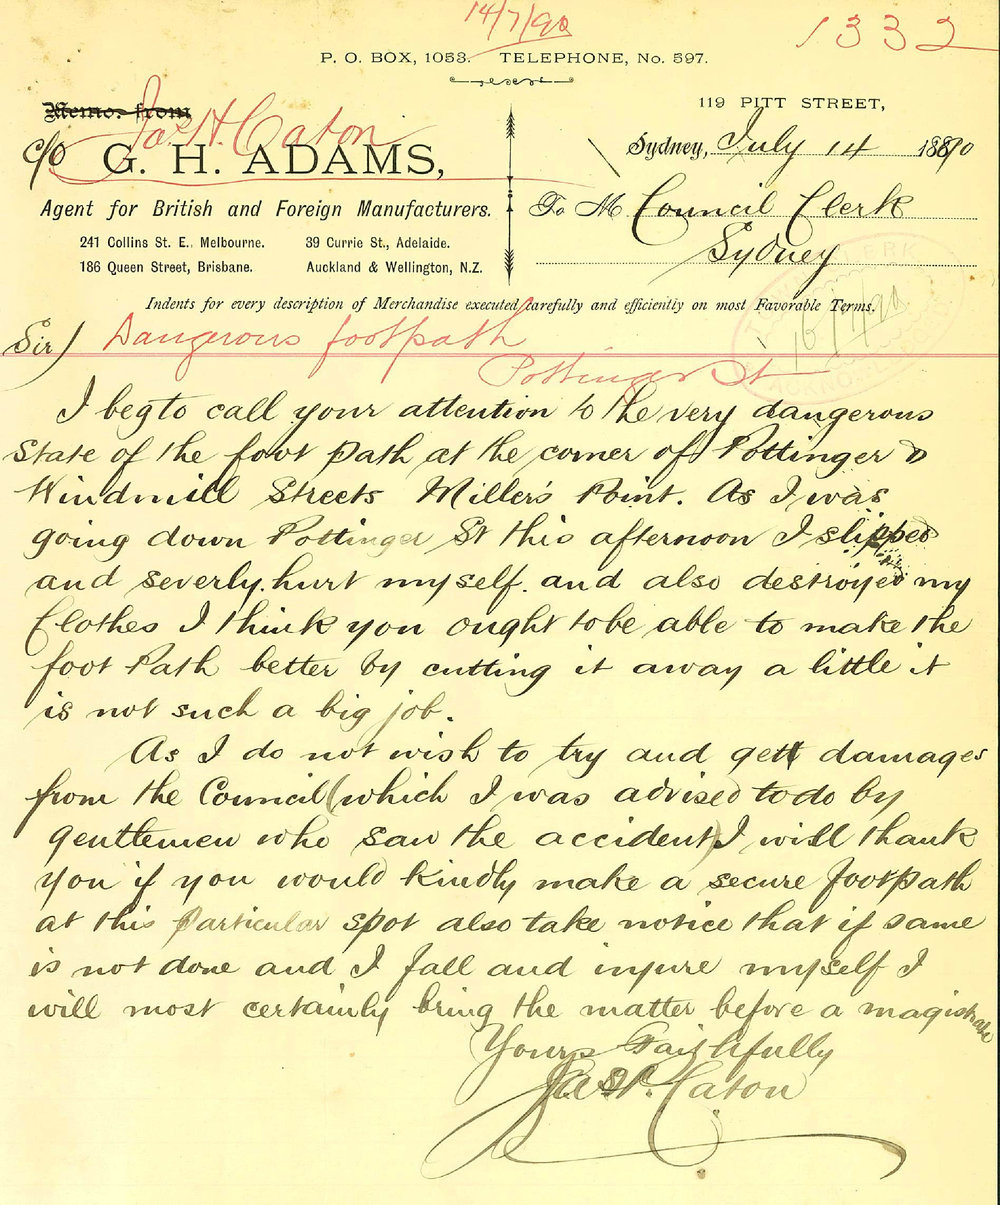 14/7/90
1332
P. O. BOX, 1053. TELEPHONE, No. 597.
119 PITT STREET,
Memo. from
Jas H. Caton
Sydney, July 14 1890
c/o G. H. ADAMS,
To M Council Clerk
Agent for British and Foreign Manufacturers.
Sydney
241 Collins St. E., Melbourne. 39 Currie St., Adelaide.
186 Queen Street, Brisbane. Auckland & Wellington, N.Z.
Indents for every description of Merchandise executed carefully and efficiently on most Favorable Terms.
TOWN CLERK
16/7/90
ACKNOWLEDGED
Sir) Dangerous footpath
Pottinger St
I beg to call your attention to the very dangerous
State of the foot path at the corner of Pottinger &
Windmill Streets Miller's Point. As I was
going down Pottinger St this afternoon I slipped
and severly hurt myself. and also destroyed my
Clothes I think you ought to be able to make the
foot Path better by cutting it away a little it
is not such a big job.
As I do not wish to try and gett damages
from the Council (which I was advised to do by
gentlemen who saw the accident) I will thank
you if you would kindly make a secure footpath
at this particular spot also take notice that if same
is not done and I fall and injure myself I
will most certainly bring the matter before a magistrate
Yours Faithfully
Jas H. Caton